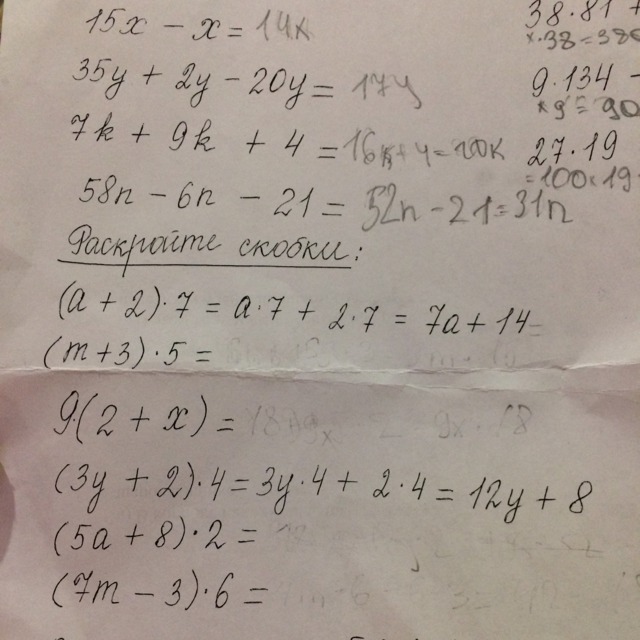 15x - x = 14x
35y + 2y - 20y = 17y
7k + 9k + 4 = 16k + 4 = 20k
58n - 6n - 21 = 52n - 21 = 31n
Раскройте скобки:
(a + 2) · 7 = a · 7 + 2 · 7 = 7a + 14
(m + 3) · 5 =
9(2 + x) =
(3y + 2) · 4 = 3y · 4 + 2 · 4 = 12y + 8
(5a + 8) · 2 =
(7m - 3) · 6 =
38 · 81 +
9 · 134 -
27 · 19
= 100 · 19